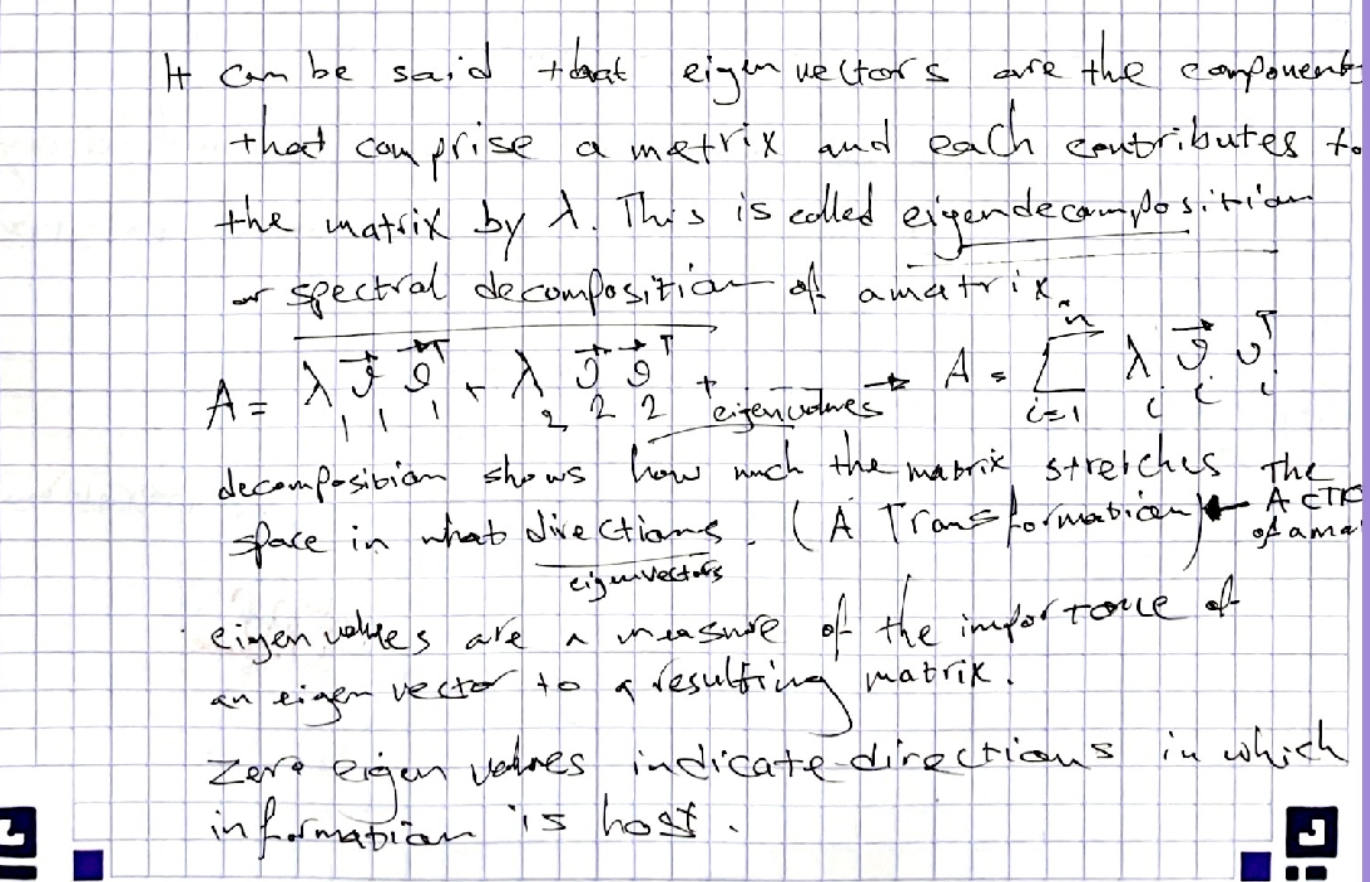 It can be said that eigen vectors are the components
that comprise a matrix and each contributes to
the matrix by λ. This is called eigendecomposition
or spectral decomposition of a matrix.
A = λ₁ v⃗₁ v⃗₁ᵀ + λ₂ v⃗₂ v⃗₂ᵀ + → A = Σⁿᵢ₌₁ λᵢ v⃗ᵢ vᵢᵀ
eigenvalues
decomposition shows how much the matrix stretches the
space in what directions. (A Transformation) ← 
of a
eigenvectors
eigen values are a measure of the importance of
an eigen vector to a resulting matrix.
Zero eigen values indicate directions in which
information is lost.